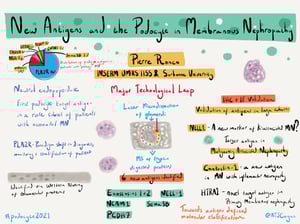 New Antigens and the Podocyte in Membranous Nephropathy
Pierre Ronco
INSERM UMRS 1155 & Sorbonne University
PLA2R
Neutral endopeptidase
First podocyte target antigen
in a rare subset of patients
with neonatal MN
PLA2R - Paradigm shift in diagnosis,
monitoring & stratification of patients
Identified via Western Blotting
of Glomerular Proteins
Major Technological Leap
Laser Microdissection
of glomeruli
MS of tryptic
digested proteins
6 new antigens identified
Exostosins 1+2
NELL-1
NCAM1
Sema3B
PCDH7
IHC + IF Validation
Validation of antigens in large cohorts
NELL-1
Target antigen in
Malignancy Associated Nephropathy
Contactin-1 - a new antigen in
MN with inflammatory neuropathy
HTRA1 - novel target antigen in
Primary Membranous nephropathy
Towards antigen defined
molecular classification
#podocyte2021